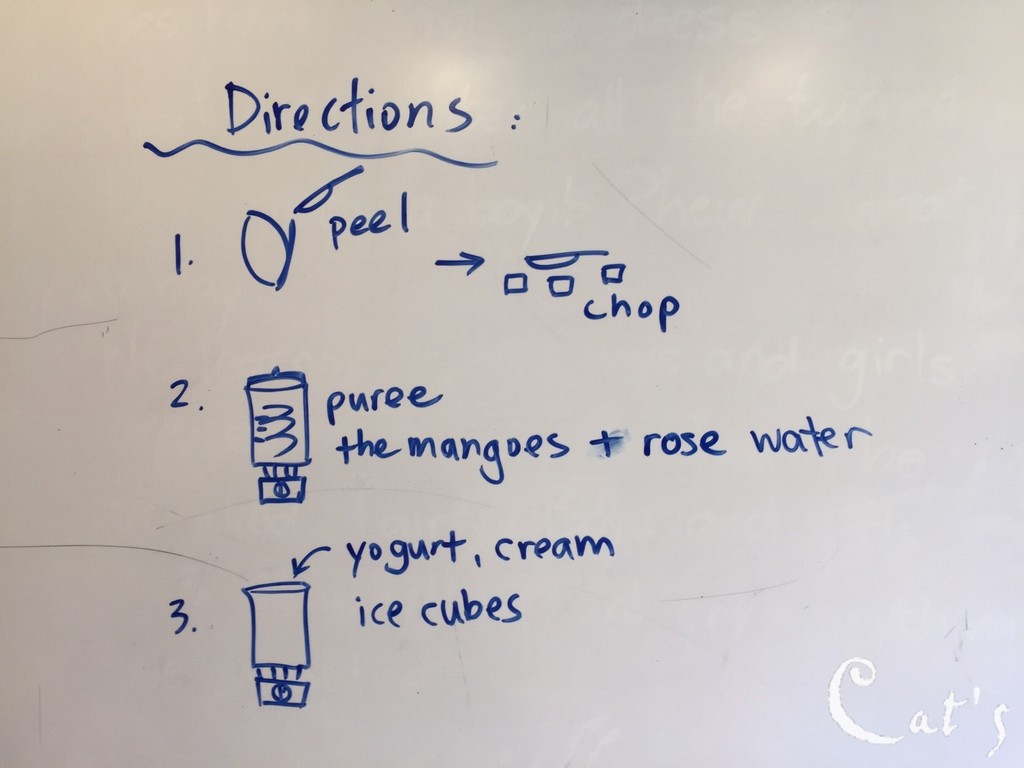 Directions :
1. peel
→ chop
2. puree
the mangoes + rose water
3. yogurt, cream
ice cubes
and girls
Cat's